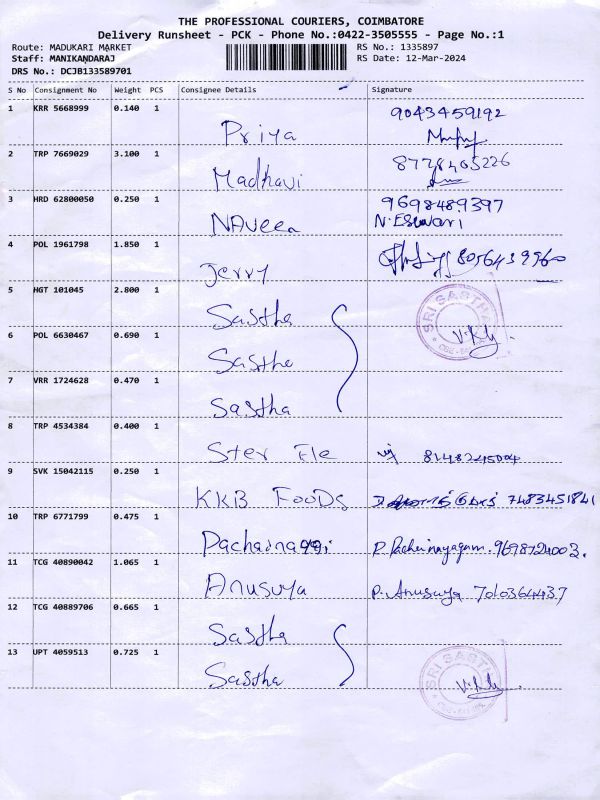 THE PROFESSIONAL COURIERS, COIMBATORE
Delivery Runsheet - PCK - Phone No.:0422-3505555 - Page No.:1
Route: MADUKARI MARKET RS No.: 1335897
Staff: MANIKANDARAJ RS Date: 12-Mar-2024
DRS No.: DCJB133589701
S No Consignment No Weight PCS Consignee Details Signature
1 KRR 5668999 0.140 1 Priya 9043459192
2 TRP 7669029 3.100 1 Madhavi 8778405226
3 HRD 62800050 0.250 1 NAveen 9698489397
N.Eswari
4 POL 1961798 1.850 1 Jerry 8056439960
5 HGT 101045 2.800 1 Sastha SRI SASTHA
6 POL 6630467 0.690 1 Sasthe
7 VRR 1724628 0.470 1 Sastha
8 TRP 4534384 0.400 1 Ster Ele
9 SVK 15042115 0.250 1 KKB FOODS 7483451841
10 TRP 6771799 0.475 1 P. Pacheinayagam. 9698724003.
11 TCG 40890042 1.065 1 Anusuya P. Anusuya 7010364437
12 TCG 40889706 0.665 1 Sastha
13 UPT 4059513 0.725 1 Sastha SRI SASTHA